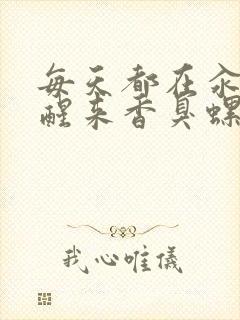 每天都在
醒来香臭螺
我心唯儀